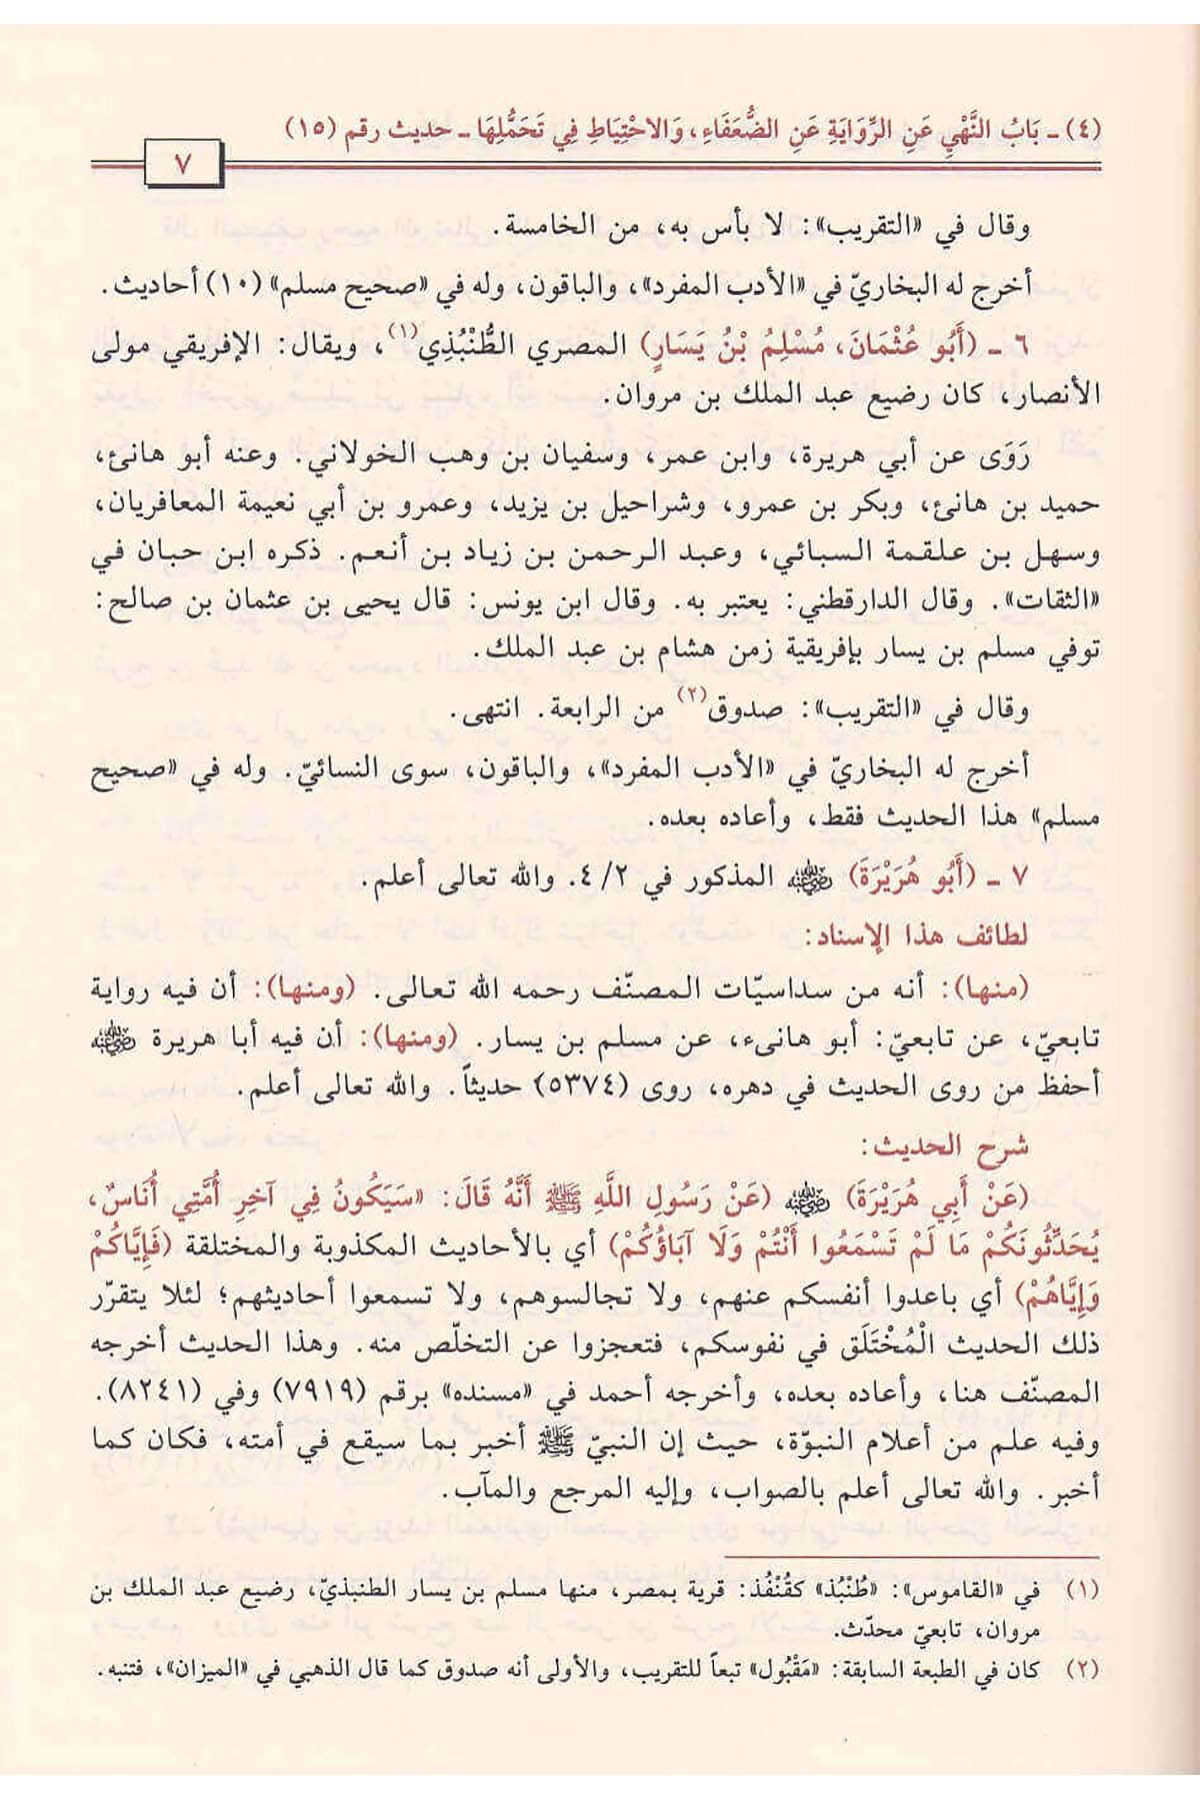 (٤) - بَابُ النَّهْيِ عَنِ الرِّوَايَةِ عَنِ الضُّعَفَاءِ، وَالاحْتِيَاطِ فِي تَحَمُّلِهَا - حديث رقم (١٥)
٧
وقال في «التقريب»: لا بأس به، من الخامسة.
أخرج له البخاريّ في «الأدب المفرد»، والباقون، وله في «صحيح مسلم» (١٠) أحاديث.
٦ - (أَبُو عُثْمَانَ، مُسْلِمُ بْنُ يَسَارٍ) المصري الطُّنْبُذِي(١)، ويقال: الإفريقي مولى
الأنصار، كان رضيع عبد الملك بن مروان.
رَوَى عن أبي هريرة، وابن عمر، وسفيان بن وهب الخولاني. وعنه أبو هانئ،
حميد بن هانئ، وبكر بن عمرو، وشراحيل بن يزيد، وعمرو بن أبي نعيمة المعافريان،
وسهل بن علقمة السبائي، وعبد الرحمن بن زياد بن أنعم. ذكره ابن حبان في
«الثقات». وقال الدارقطني: يعتبر به. وقال ابن يونس: قال يحيى بن عثمان بن صالح:
توفي مسلم بن يسار بإفريقية زمن هشام بن عبد الملك.
وقال في «التقريب»: صدوق(٢) من الرابعة. انتهى.
أخرج له البخاريّ في «الأدب المفرد»، والباقون، سوى النسائيّ. وله في «صحيح
مسلم» هذا الحديث فقط، وأعاده بعده.
٧ - (أَبُو هُرَيْرَةَ) رضي الله عنه المذكور في ٤/٢. والله تعالى أعلم.
لطائف هذا الإسناد:
(منها): أنه من سداسيّات المصنّف رحمه الله تعالى. (ومنها): أن فيه رواية
تابعيّ، عن تابعيّ: أبو هانىء، عن مسلم بن يسار. (ومنها): أن فيه أبا هريرة رضي الله عنه
أحفظ من روى الحديث في دهره، روى (٥٣٧٤) حديثاً. والله تعالى أعلم.
شرح الحديث:
(عَنْ أَبِي هُرَيْرَةَ) رضي الله عنه (عَنْ رَسُولِ اللَّهِ ﷺ أَنَّهُ قَالَ: «سَيَكُونُ فِي آخِرِ أُمَّتِي أُنَاسٌ،
يُحَدِّثُونَكُمْ مَا لَمْ تَسْمَعُوا أَنْتُمْ وَلَا آبَاؤُكُمْ) أي بالأحاديث المكذوبة والمختلقة (فَإِيَّاكُمْ
وَإِيَّاهُمْ) أي باعدوا أنفسكم عنهم، ولا تجالسوهم، ولا تسمعوا أحاديثهم؛ لئلا يتقرّر
ذلك الحديث الْمُخْتَلَق في نفوسكم، فتعجزوا عن التخلّص منه. وهذا الحديث أخرجه
المصنّف هنا، وأعاده بعده، وأخرجه أحمد في «مسنده» برقم (٧٩١٩) وفي (٨٢٤١).
وفيه علم من أعلام النبوّة، حيث إن النبيّ ﷺ أخبر بما سيقع في أمته، فكان كما
أخبر. والله تعالى أعلم بالصواب، وإليه المرجع والمآب.
(١) في «القاموس»: «طُنْبُذ» كقُنْفُذ: قرية بمصر، منها مسلم بن يسار الطنبذيّ، رضيع عبد الملك بن
مروان، تابعيّ محدّث.
(٢) كان في الطبعة السابقة: «مَقْبُول» تبعاً للتقريب، والأولى أنه صدوق كما قال الذهبي في «الميزان»، فتنبه.